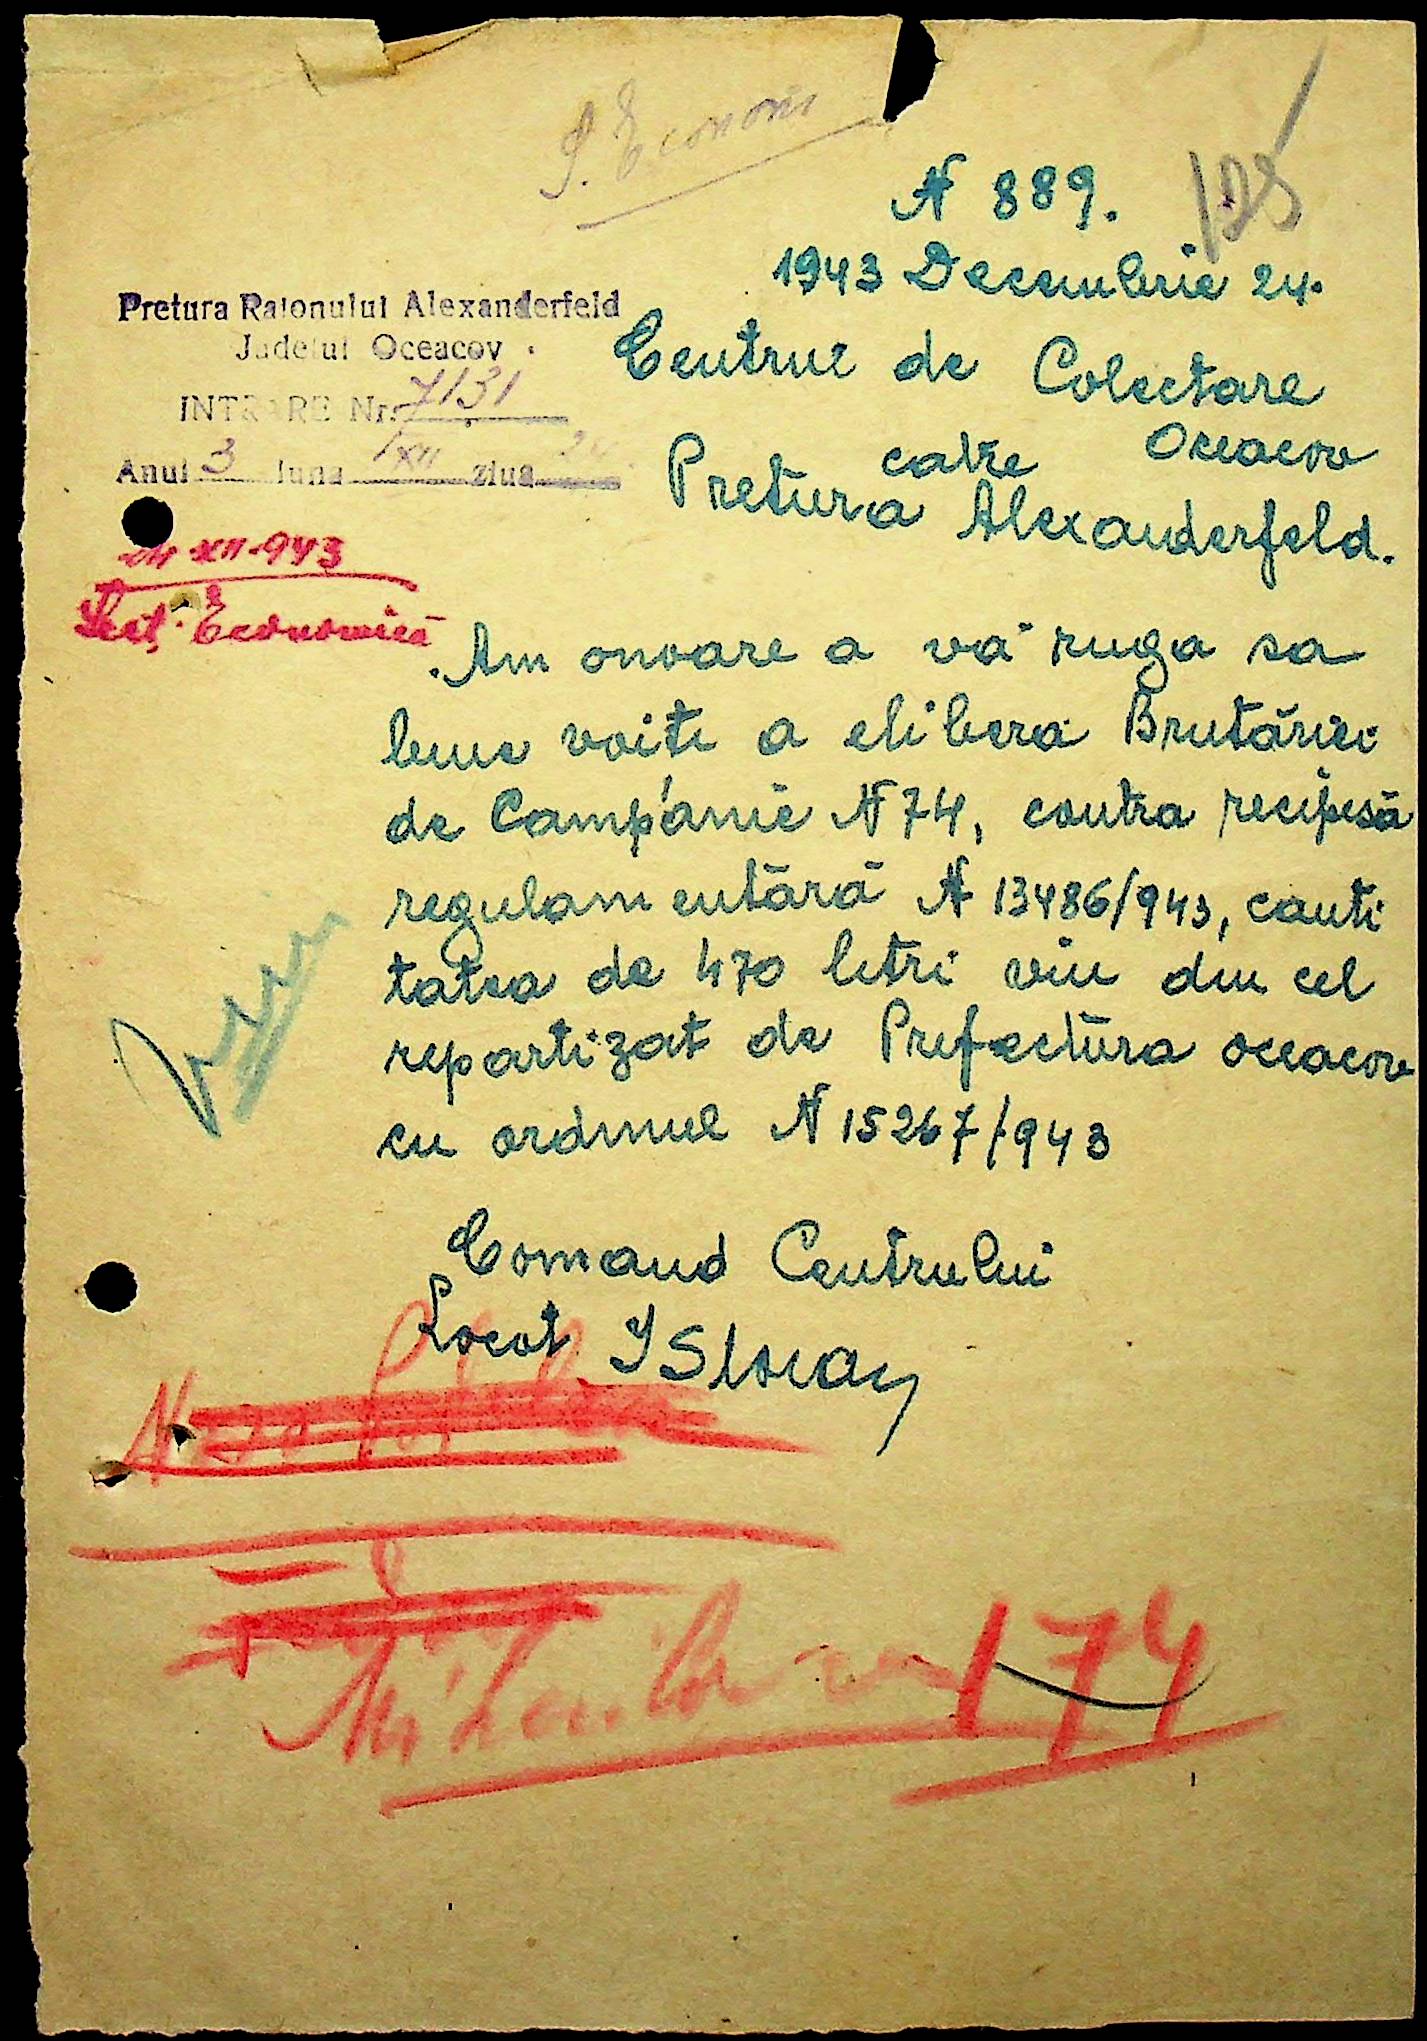 S. Econom
N 889.
125
1943 Decembrie 24.
Pretura Raionului Alexanderfeld
Judetul Oceacov
INTRARE Nr. 7131
Anul 3 luna XII ziua 24
Centrul de Colectare
Oceacov
catre
Pretura Alexanderfeld.
24 XII 943
Secţ. Economică
Am onoare a vă ruga sa
bine voiti a elibera Brutăriei
de Campanie N 74, contra recipisă
regulamentără N 13486/943, canti
tatea de 470 litri vin din cel
repartizat de Prefectura Oceacov
cu ordinul N 15267/943
Comand Centrului
Locot
174